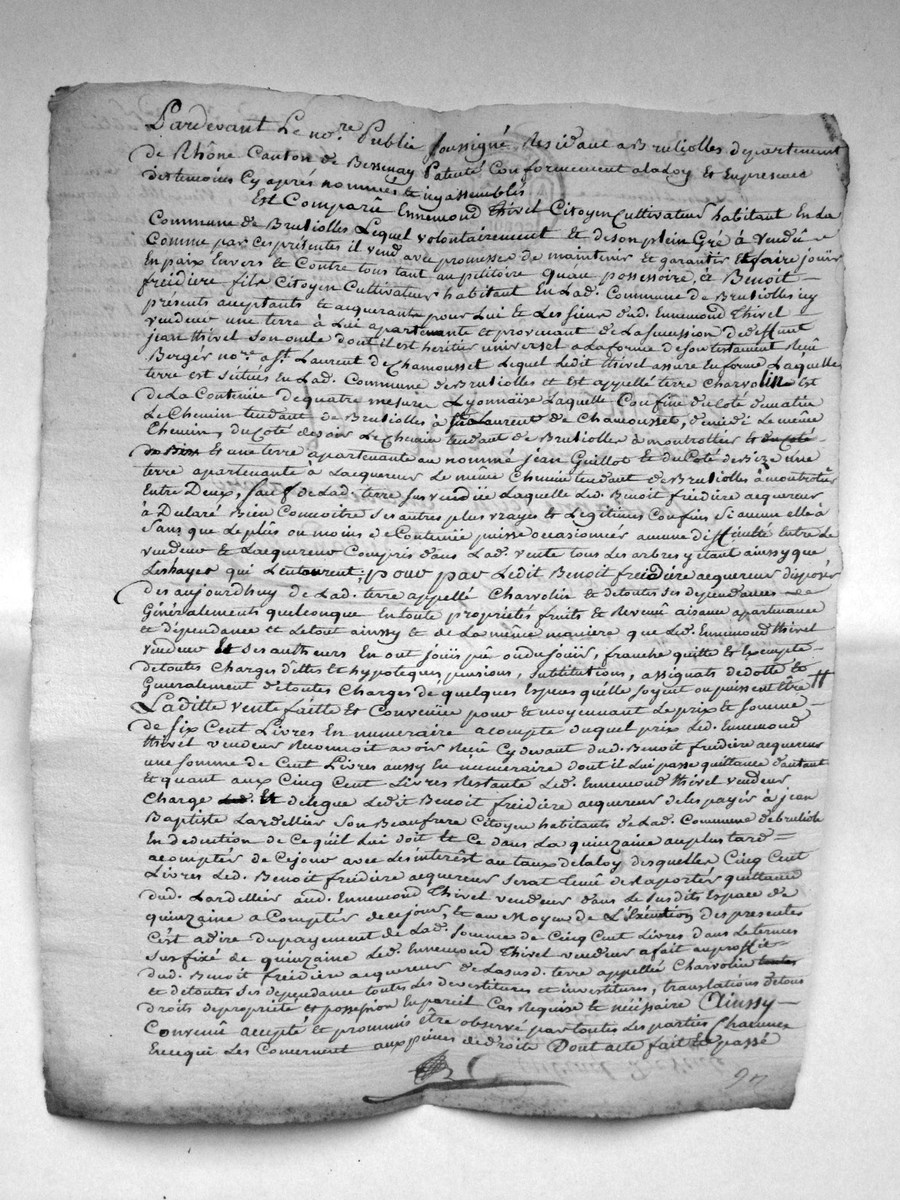 Pardevant Le no.re Public soussigné Residant a Brusiolles departement
de Rhône Canton de Bessenay Patenté Conformement alaloy et Enpresence
destemoins Cy aprés nommés &
Est Comparû Ennemond Thivel Citoyen Cultivateur habitant En La
Commune de Brusiolles Lequel volontairement Et deson plein Gré à Vendû
Comme par ces présentes il vend avec promesse de maintenir et garantir Et faire joüir
En paix Envers et Contre tous tant au petitoire quau possessoire, à Benoit
freidiere fils Citoyen Cultivateur habitant En Lad. Commune de Brusiolles icy
présents aceptants et acquerants pour Lui & Les sieur dud. Ennemond Thivel
vendeur une terre à Lui apartenante et provenant de La sucession de deffunt
jean thivel son oncle dont il est heritier universel a La forme de son testament Recû
Berger no.re a S.t Laurent de Chamousset Lequel Ledit thivel assure En forme Laquelle
terre est situées En Lad. Commune de Brusiolles et Est appellé terre Charvolin Est
de La Contenüe de quatre mesure Lyonnaise Laquelle Confine du Coté de matin
Le Chemin tendant de Brusiolles à St Laurent de Chamousset, de midi Le même
Chemin, du Coté de soir Le Chemin tendant de Brusiolles à montrottier
Et une terre apartenante au nommé jean Guillot Et du Coté de Bize une
terre apartenante à Lacquereur Le même Chemin tendant de Brusiolles à montrotier
Entre Deux, sauf de Lad. terre sus vendüe Laquelle Led. Benoit freidière acquereur
à Declaré Bien Connoitre Ses autres plus vrayes & Legitimes Confins Si aucun elle à
Sans que Le plus ou moins de Contenüe puisse occasionner aucune difficulté Entre Le
vendeur & Lacquereur Compris dans Lad. vente tous Les arbres y étant ainssy que
Les hayes qui Lentourent; pour par Ledit Benoit freidière acquereur disposer
des aujourdhuy de Lad. terre appellé Charvolin et de toutes ses dependances
Généralements quelconque En toute propriétés fruits & Revenû aisance apartenance
et dépendance et Letout ainssy & de La même maniere que Led. Ennemond thivel
vendeur Et Ses autheurs En ont joüis pû ou du joüir, franche quitte & Exempte
de toutes Charges dettes Et hypoteques, pensions, substitutions, assignats de dotte &
Gneralement de toutes Charges de quelques Especes quelle soyent ou puissent être
Laditte vente faitte Et Convenüe pour & moyennant Le prix & somme
de six Cent Livres En numeraire acompte duquel prix Led. Ennemond
thivel vendeur Reconnoit avoir Recû Cydevant dud. Benoit freidière acquereur
une somme de Cent Livres aussy En numéraire dont il Lui passe quittance d'autant
Et quant aux Cinq Cent Livres Restante Led. Ennemond thivel vendeur
Charge Et deleque Ledit Benoit freidière acquereur de les payer à jean
Baptiste Lardellier Son Beaufrere Citoyen habitants de Lad. Commune de brusiolle
En deduction de Ce quil Lui doit & Ce dans La quinzaine au plus tard
acompter de Ce jour avec Les interêst au taux de la loy desquelles Cinq Cent
Livres Led. Benoit freidière acquereur serat tenû de Raporter quittance
dud. Lardellier aud. Ennemond Thivel vendeur dans Le susdits Espace de
quinzaine a Compter de ce jour, & au moyen de L'Exécution des presentes
Cest a dire du payement de Lad. Somme de Cinq Cent Livres dans Le termes
Sus fixé de quinzaine Led. Ennemond Thivel vendeur a fait au proffit
dud. Benoit freidière acquereur de La susd. terre appellée Charvolin
et de toutes ses dependance toutes Les devestitures et investitures, translations de tous
droits de propriété & possession En pareil Cas Requise & nécessaire Ainssy
Convenû accepté & prommis être observé par toutes Les parties Chacunes
En ce qui Les Concernent aux peines de droite Dont acte fait Et passé